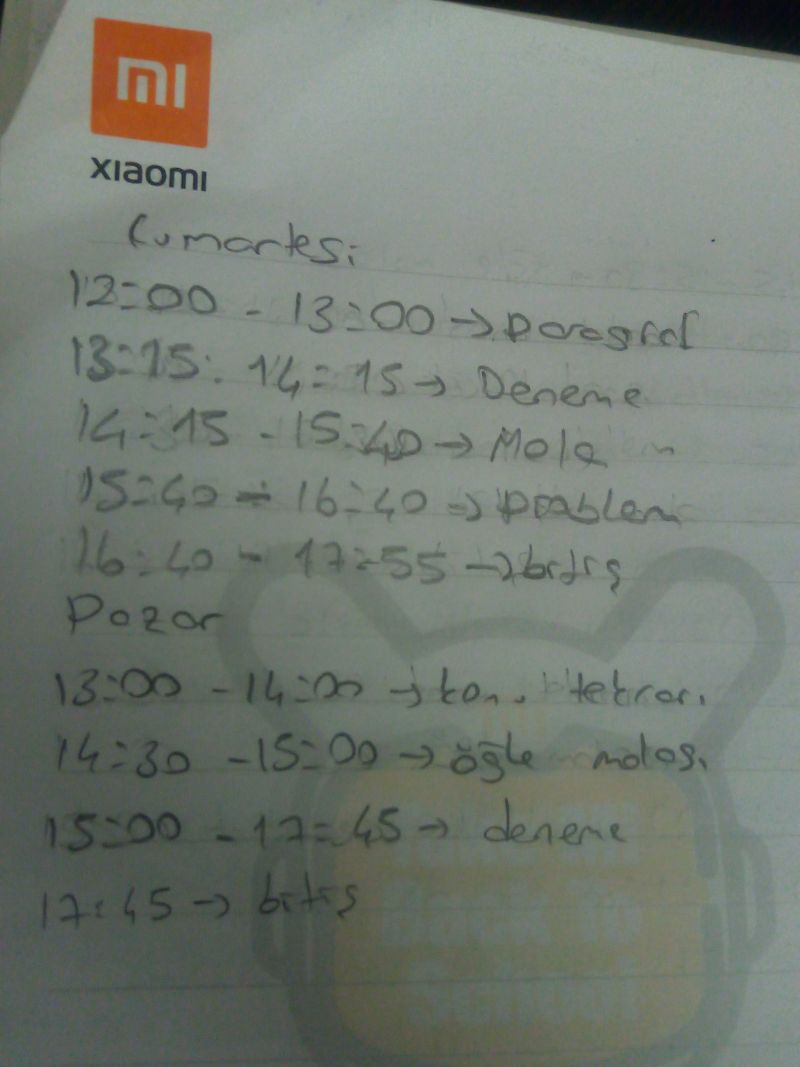 mi
xiaomi
Cumartesi
12:00 - 13:00 → paragraf
13:15 - 14:15 → Deneme
14:15 - 15:40 → Mola
15:40 - 16:40 → problem
16:40 - 17:55 → bitiş
Pazar
13:00 - 14:00 → konu tekrarı
14:30 - 15:00 → öğle molası
15:00 - 17:45 → deneme
17:45 → bitiş
Back to
School